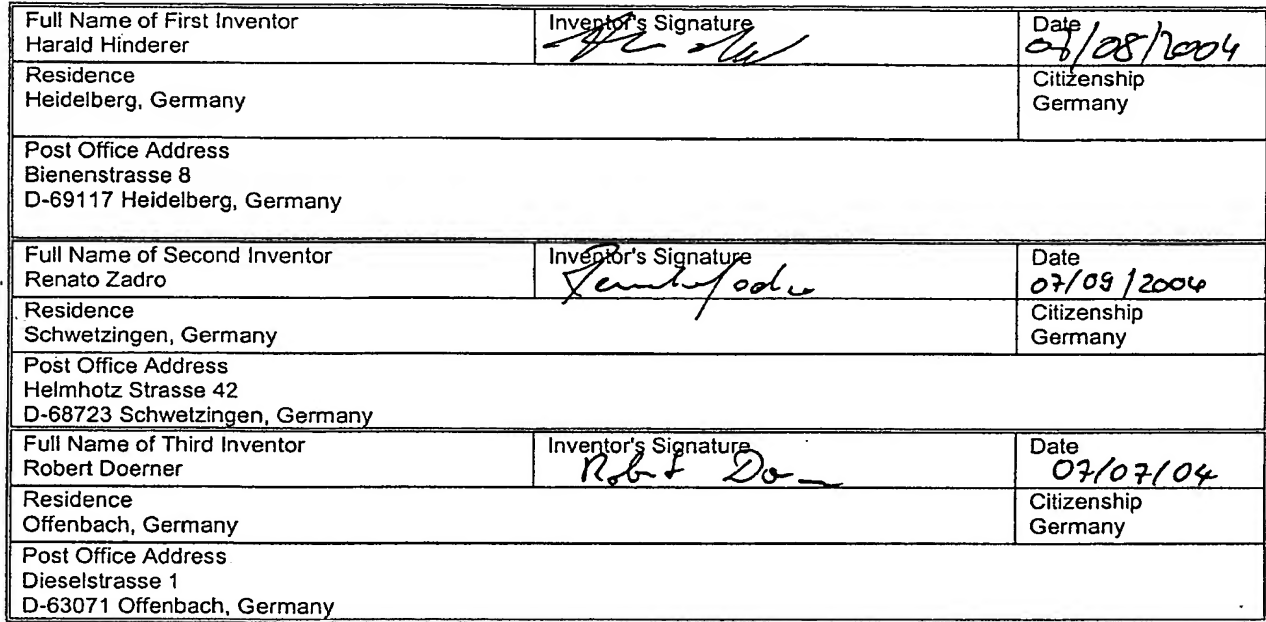 Full Name of First Inventor
Harald Hinderer
Inventor's Signature
Date
07/08/2004
Residence
Heidelberg, Germany
Citizenship
Germany
Post Office Address
Bienenstrasse 8
D-69117 Heidelberg, Germany
Full Name of Second Inventor
Renato Zadro
Inventor's Signature
Renato Zadro
Date
07/09/2004
Residence
Schwetzingen, Germany
Citizenship
Germany
Post Office Address
Helmhotz Strasse 42
D-68723 Schwetzingen, Germany
Full Name of Third Inventor
Robert Doerner
Inventor's Signature
Date
07/07/04
Residence
Offenbach, Germany
Citizenship
Germany
Post Office Address
Dieselstrasse 1
D-63071 Offenbach, Germany